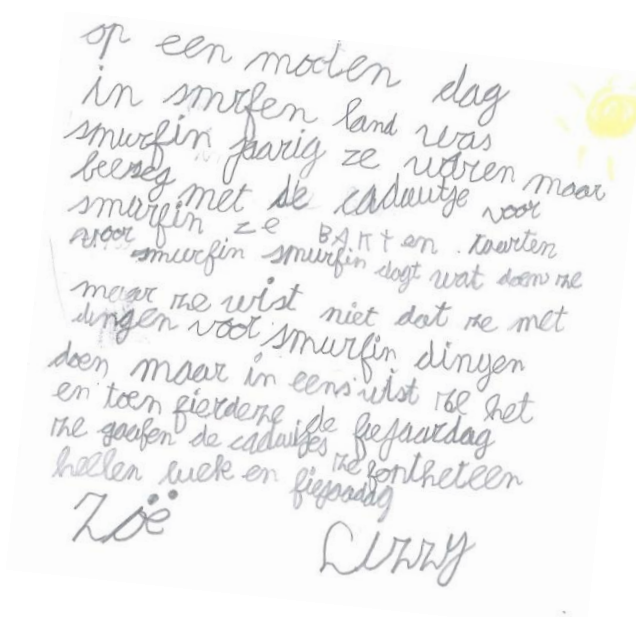 op een mooten dag
in smrfen land was
smurfin jaarig ze waren maar
beezeg met de cadautje voor
smurfin ze BAKten taarten
voor smurfin smurfin dagt wat doen ze
maar ze wist niet dat ze met
dingen voor smurfin dingen
doen maar in eens wist ze het
en toen fierdeze de fiejaardag
ze gaafen de cadautjes ze fontheteen
heelen luek en fiejaadag
Zoë Lizzy